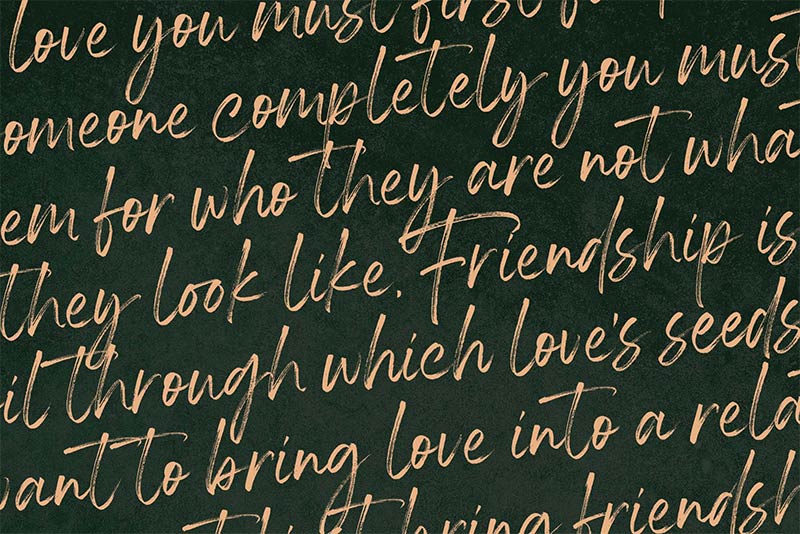 love you must first
omeone completely you must
em for who they are not what
they look like. Friendship is
il through which love's seeds
want to bring love into a rela
bring friendsh